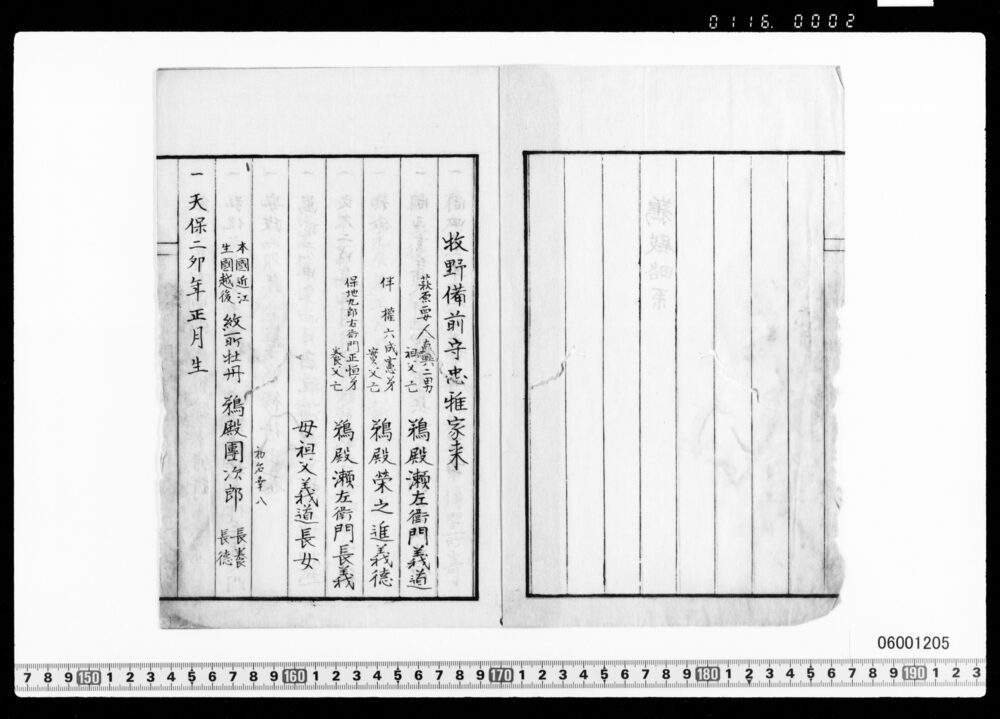 0116. 0002
牧野備前守忠雅家来
萩原要人直興二男
祖父亡
鵜殿瀬左衛門義道
伴 權六成憲弟
實父亡
鵜殿榮之進義德
保地九郎右衛門正恒弟
養父亡
鵜殿瀬左衛門長義
母祖父義道長女
初名幸八
本國近江
生國越後
紋所牡丹
鵜殿團次郎
長養
長德
一天保二卯年正月生
06001205
7 8 9 150 1 2 3 4 5 6 7 8 9 160 1 2 3 4 5 6 7 8 9 170 1 2 3 4 5 6 7 8 9 180 1 2 3 4 5 6 7 8 9 190 1 2 3